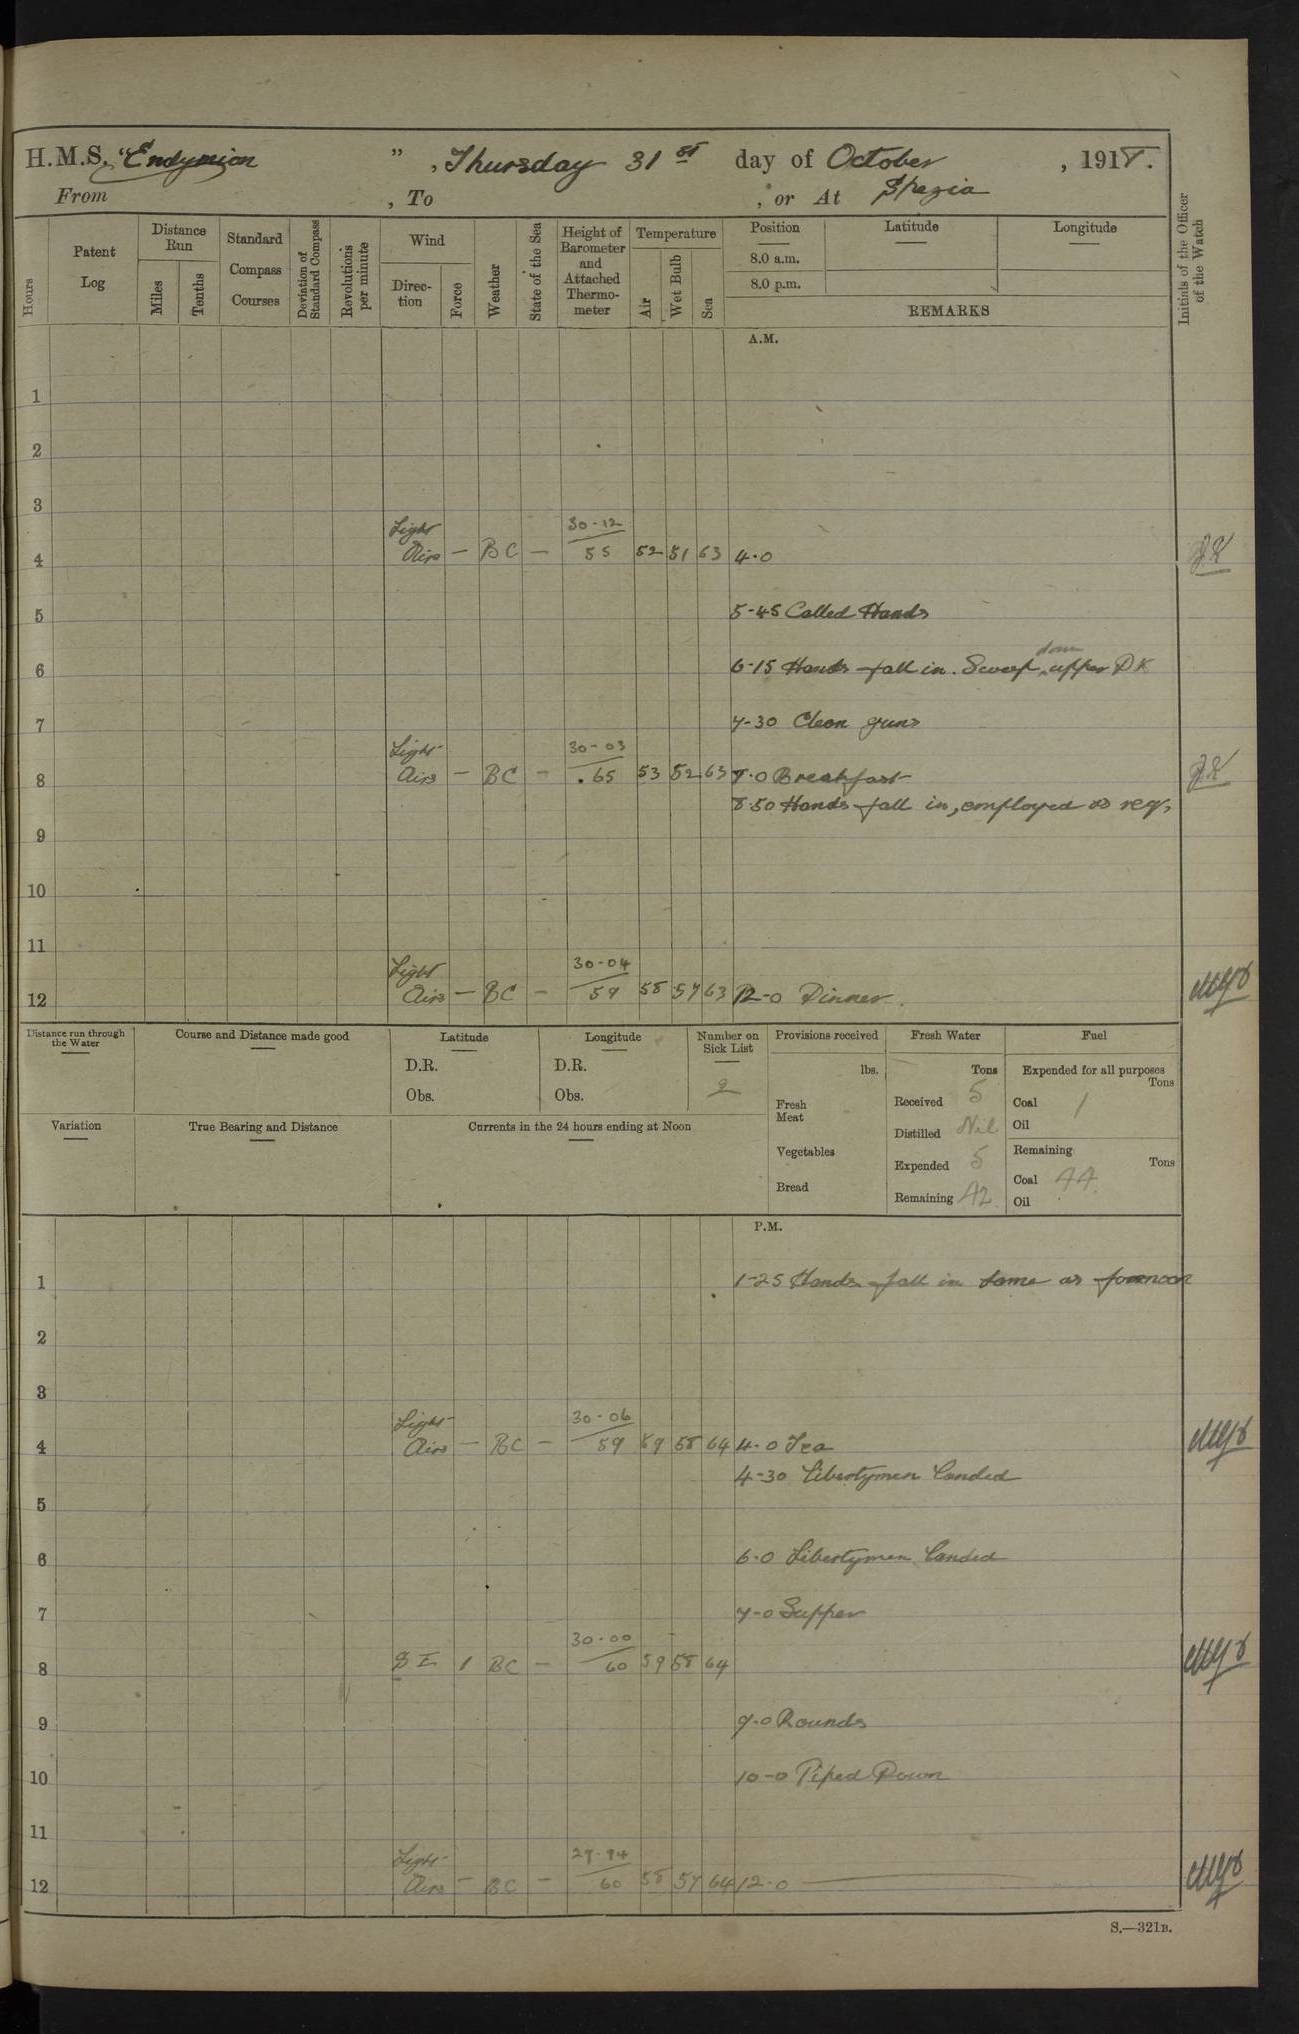 H.M.S. "Endymion", Thursday 31st day of October, 1918.
From , To , or At Spezia
Hours
Patent Log
Distance Run
Miles
Tenths
Standard Compass Courses
Deviation of Standard Compass
Revolutions per minute
Wind
Direction
Force
Weather
State of the Sea
Height of Barometer and Attached Thermometer
Temperature
Air
Wet Bulb
Sea
Position
8.0 a.m.
8.0 p.m.
Latitude
Longitude
REMARKS
Initials of the Officer of the Watch
A.M.
1
2
3
4 Light Airs — BC — 30-12 55 52 51 63 4.0
5 5-45 Called Hands
6 6-15 Hands fall in. Sweep down upper DK
7 7-30 Clean guns
8 Light Airs — BC — 30-03 .65 53 52 63 8.0 Breakfast
8.50 Hands fall in, employed as req.
9
10
11
12 Light Airs — BC — 30-04 59 58 57 63 12-0 Dinner.
Distance run through the Water
Course and Distance made good
Latitude
D.R.
Obs.
Longitude
D.R.
Obs.
Number on Sick List
2
Provisions received
lbs.
Fresh Meat
Vegetables
Bread
Fresh Water
Tons
Received 5
Distilled Nil
Expended 5
Remaining 42
Fuel
Expended for all purposes
Tons
Coal 1
Oil
Remaining
Tons
Coal 44
Oil
Variation
True Bearing and Distance
Currents in the 24 hours ending at Noon
P.M.
1 1-25 Hands fall in same as forenoon
2
3
4 Light Airs — BC — 30-06 59 59 58 64 4.0 Tea
4-30 Libertymen Landed
5
6 6.0 Libertymen Landed
7 7-0 Supper
8 SE 1 BC — 30-00 60 59 58 64
9 9.0 Rounds
10 10-0 Piped Down
11
12 Light Airs — BC — 29.94 60 58 57 64 12.0
S.—321B.